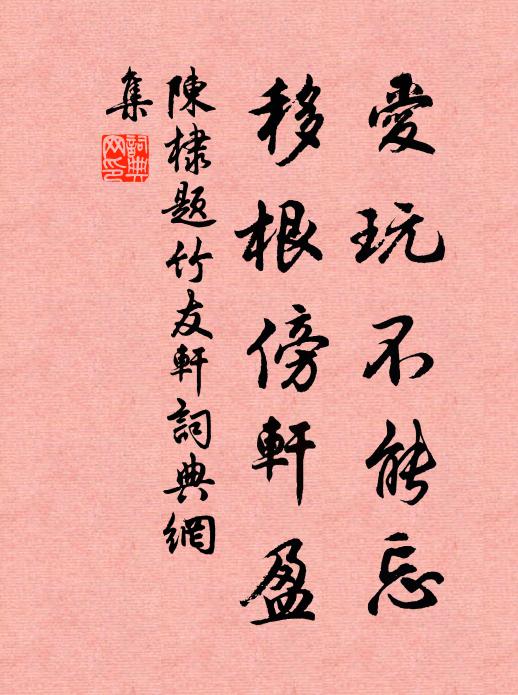 愛玩不能忘
移根傍軒盈
陳棣題竹友軒詞典網
集
詞典
网印